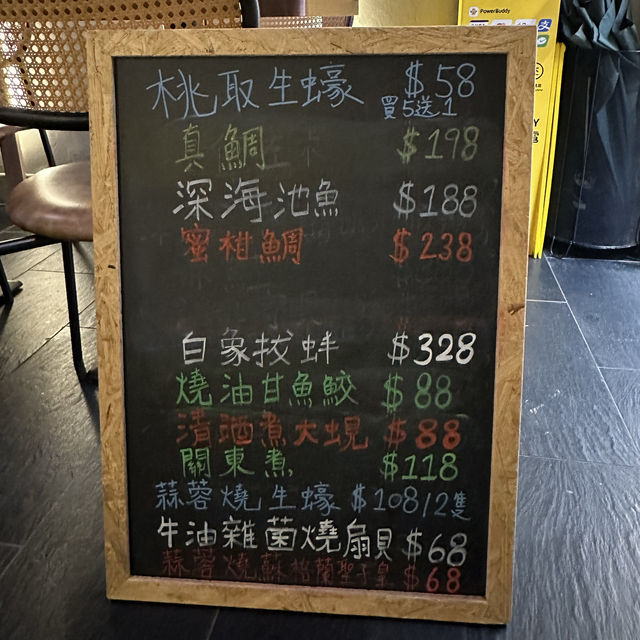 PowerBuddy
桃取生蠔 $58
買5送1
真鯛 $198
深海池魚 $188
蜜柑鯛 $238
白象拔蚌 $328
燒油甘魚鮫 $88
清晒煮大蜆 $88
關東煮 $118
蒜蓉燒生蠔 $108/2隻
牛油雜菌燒扇貝 $68
蒜蓉燒蘇格蘭聖子皇 $68